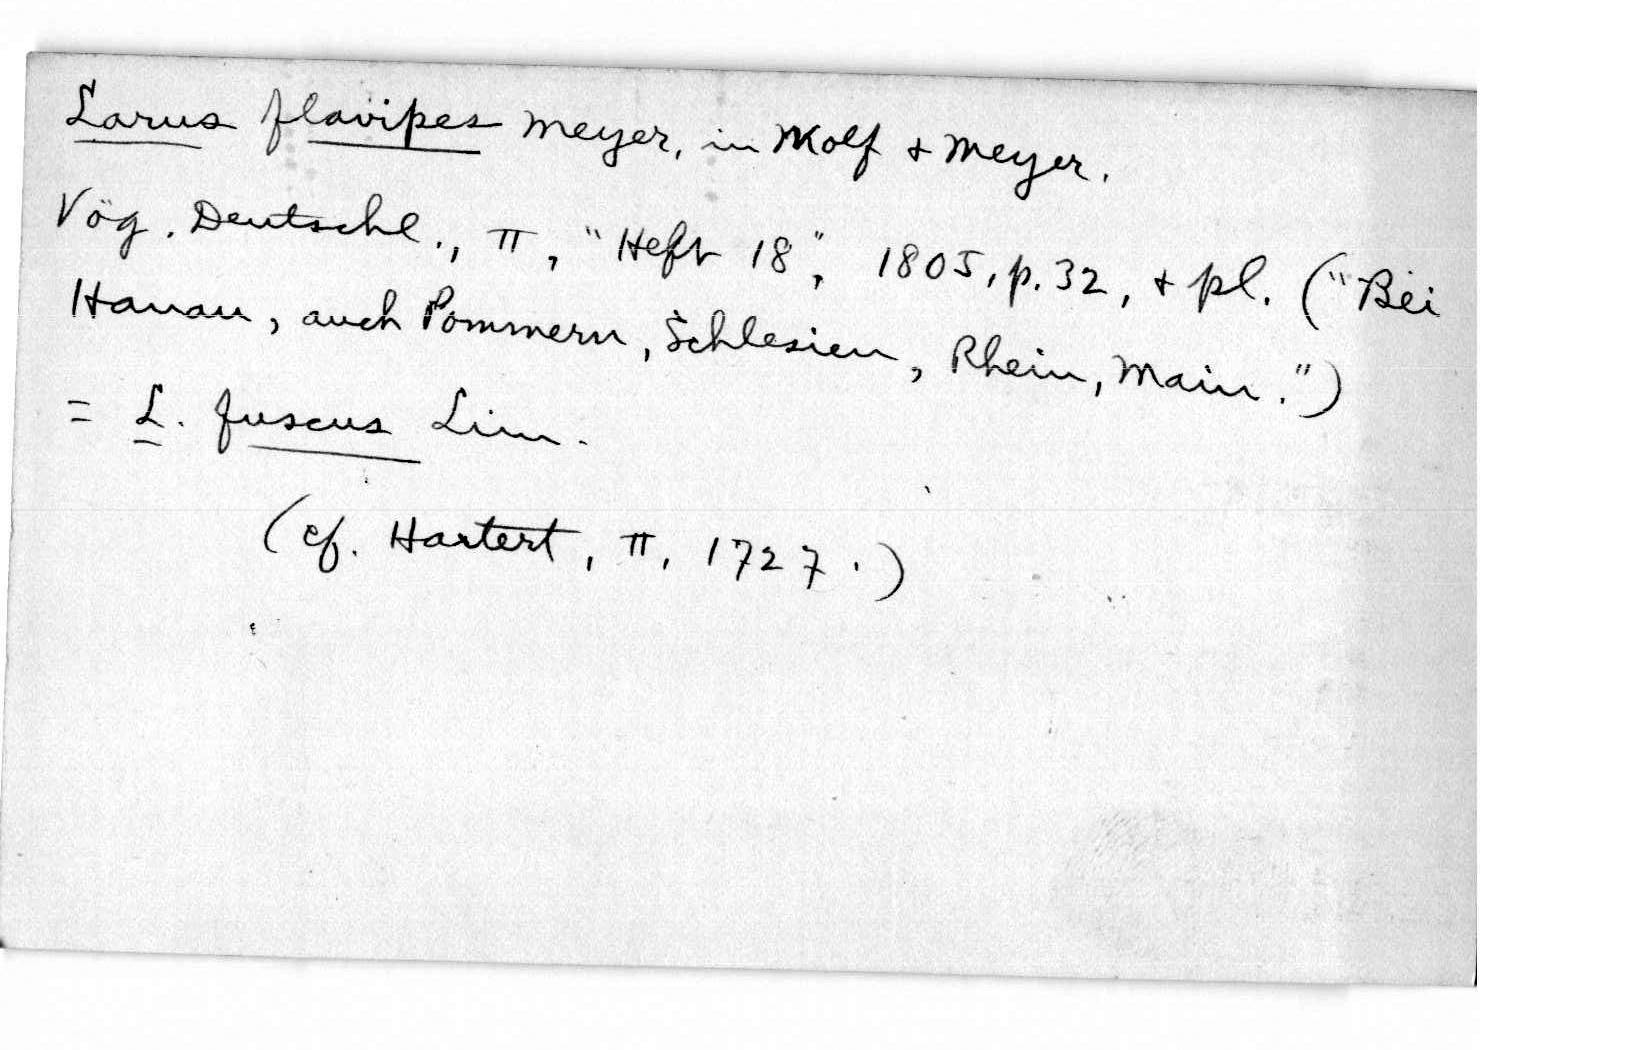 Larus flavipes Meyer, in Wolf & Meyer.
Vög. Deutschl., II, "Heft 18", 1805, p. 32, & pl. ("Bei
Hanau, auch Pommern, Schlesien, Rhein, Main.")
= L. fuscus Linn.
(cf. Hartert, II, 1727.)